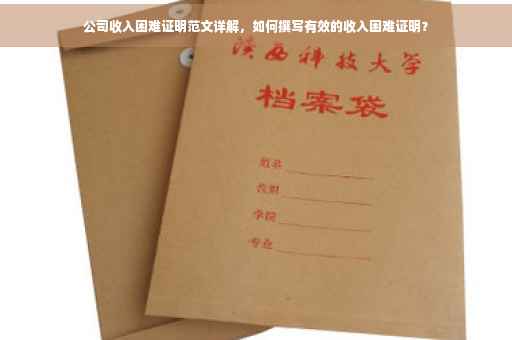 公司收入困难证明范文详解，如何撰写有效的收入困难证明？
陕西科技大学
档案袋
姓名
学院
专业